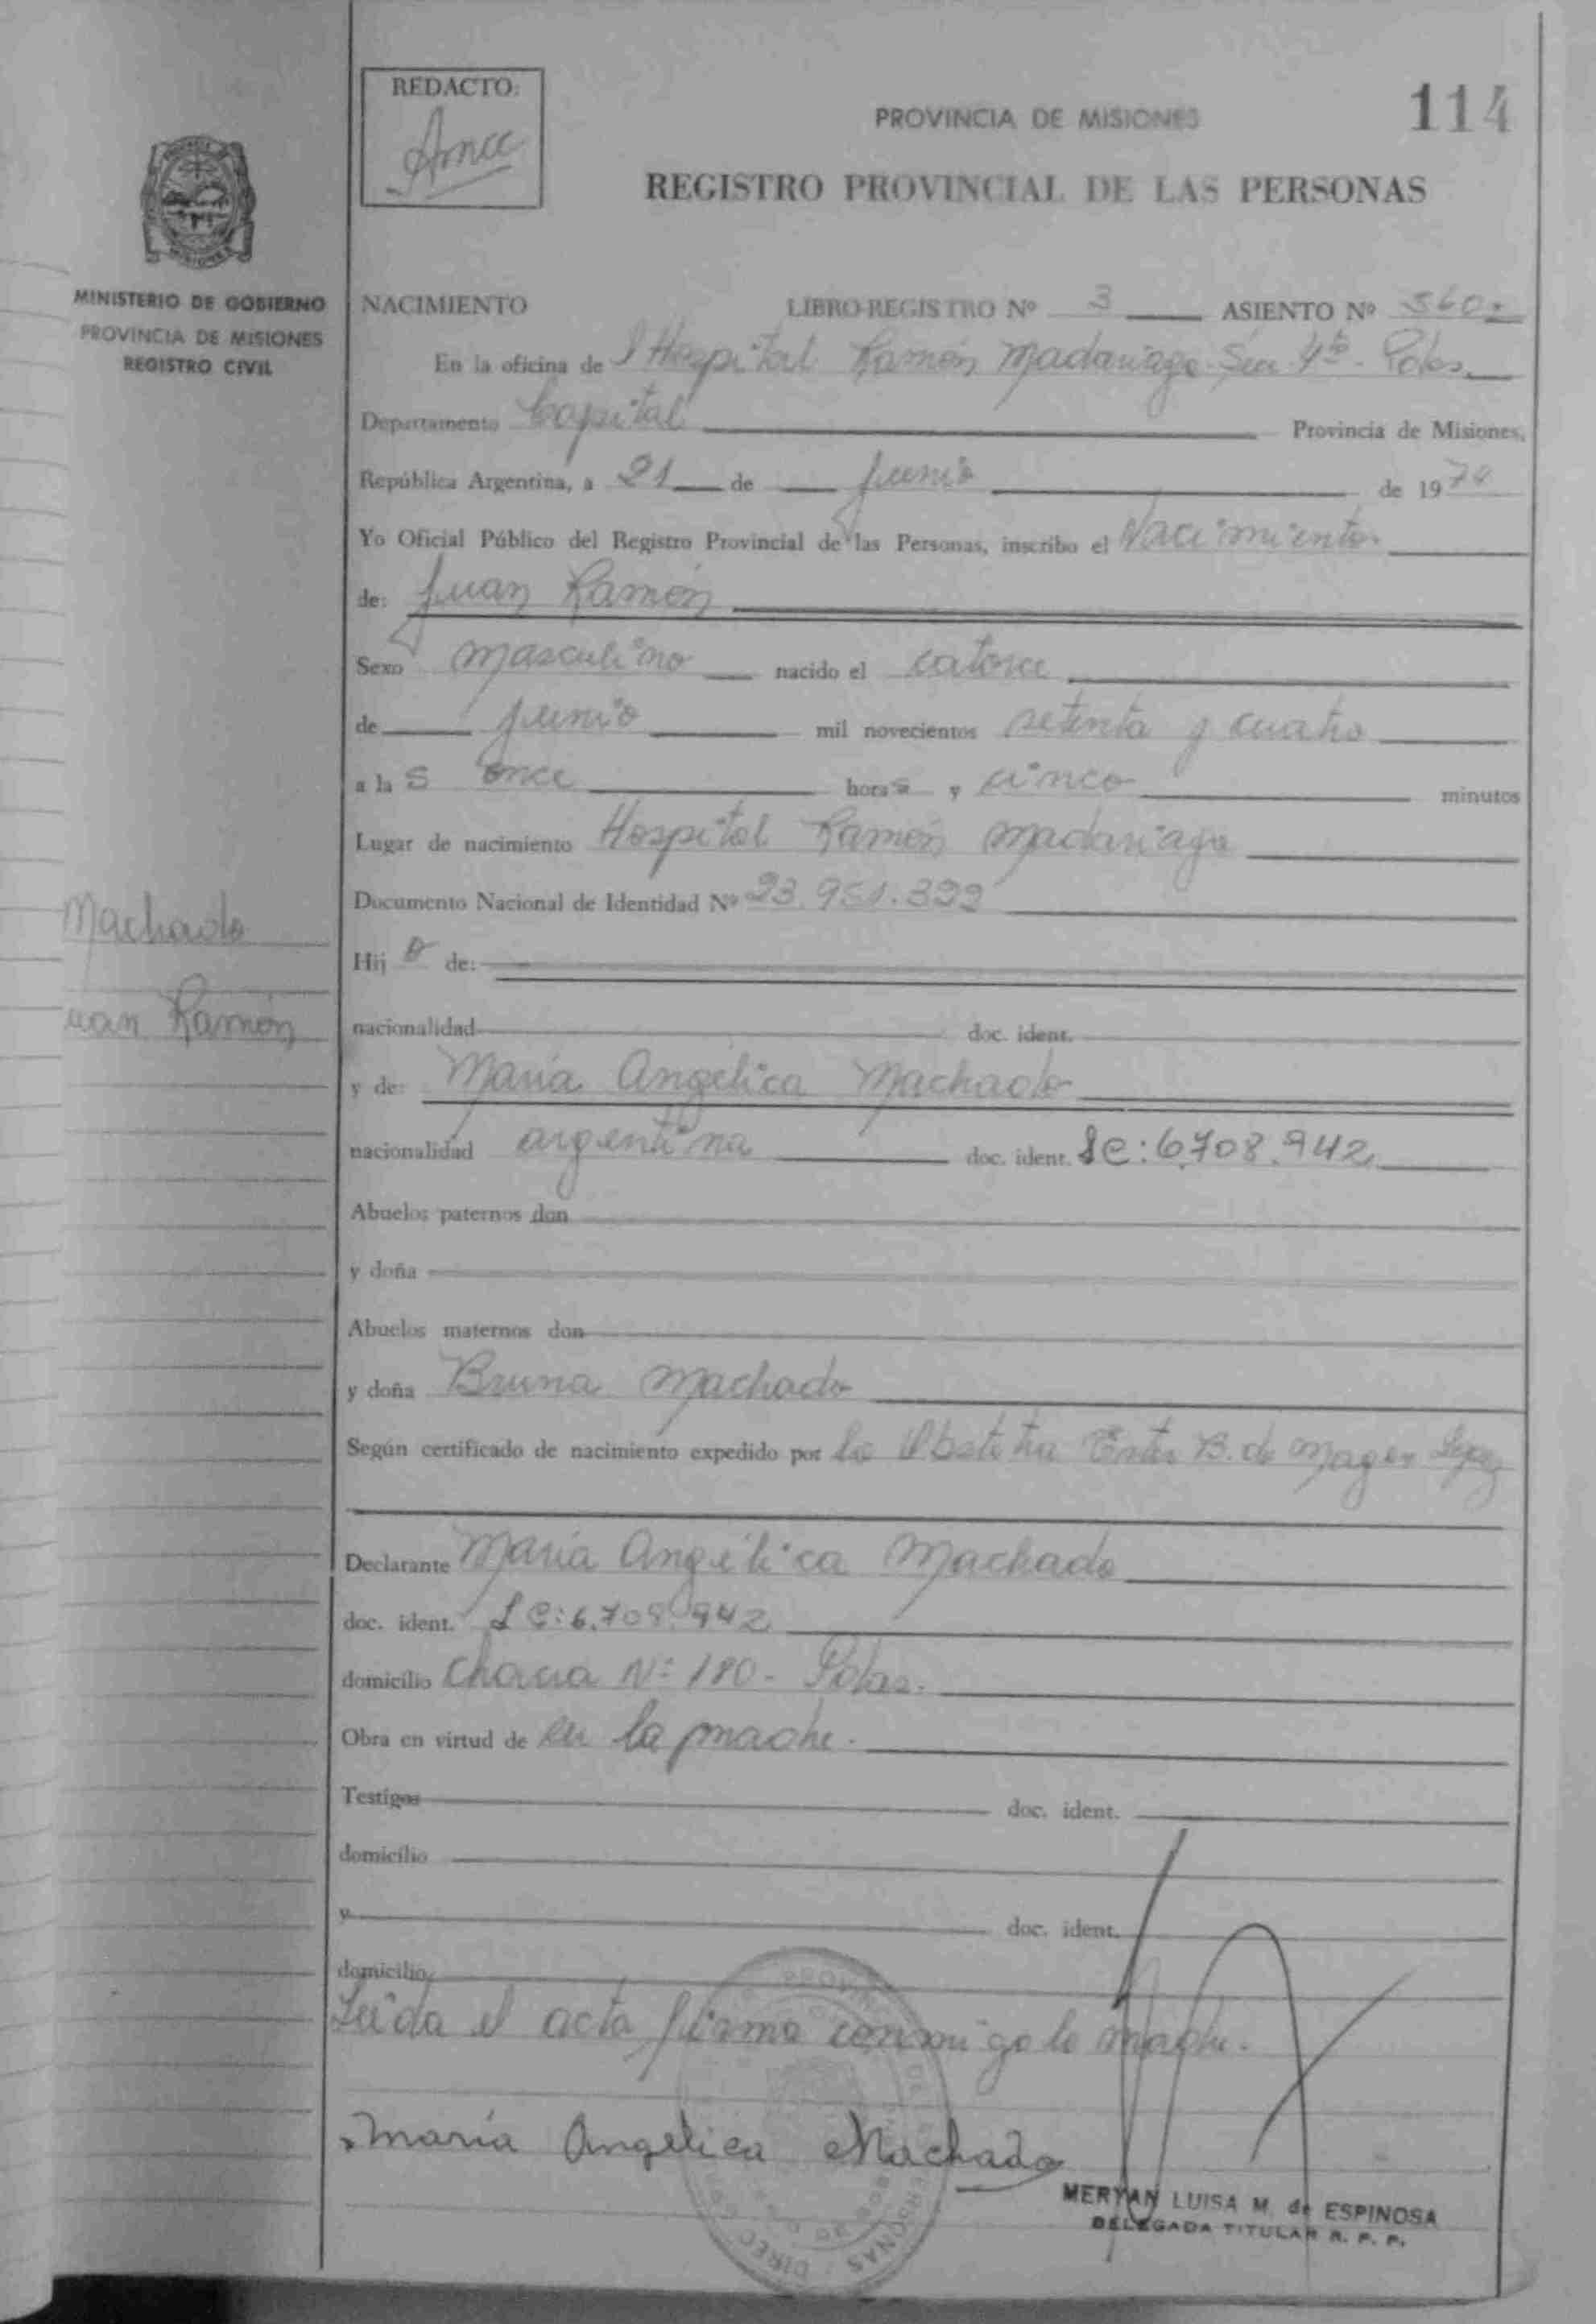 REDACTO:
PROVINCIA DE MISIONES
114
REGISTRO PROVINCIAL DE LAS PERSONAS
MINISTERIO DE GOBIERNO
PROVINCIA DE MISIONES
REGISTRO CIVIL
NACIMIENTO LIBRO-REGISTRO Nº 3 ASIENTO Nº 560
En la oficina de l Hospital Ramón Madariaga - Sec 4ta - Pdas.
Departamento Capital Provincia de Misiones,
República Argentina, a 21 de junio de 1974
Yo Oficial Público del Registro Provincial de las Personas, inscribo el Nacimiento
de: Juan Ramón
Sexo masculino nacido el catorce
de junio mil novecientos setenta y cuatro
a la s once horas y cinco minutos
Lugar de nacimiento Hospital Ramón Madariaga
Documento Nacional de Identidad Nº 23.951.399
Machado
Hij o de:
uan Ramón
nacionalidad doc. ident.
y de: María Angélica Machado
nacionalidad argentina doc. ident. LC: 6.708.942
Abuelos paternos don
y doña
Abuelos maternos don
y doña Bruna Machado
Según certificado de nacimiento expedido por la Obstetra Ester B. de
Declarante María Angélica Machado
doc. ident. LC: 6.708.942
domicilio Chacra Nº 180 - Pdas.
Obra en virtud de ser la madre.
Testigos doc. ident.
domicilio
y doc. ident.
domicilio
Leída el acta firma conmigo la madre.
María Angélica Machado
MERYAN LUISA M. de ESPINOSA
DELEGADA TITULAR R. P. P.